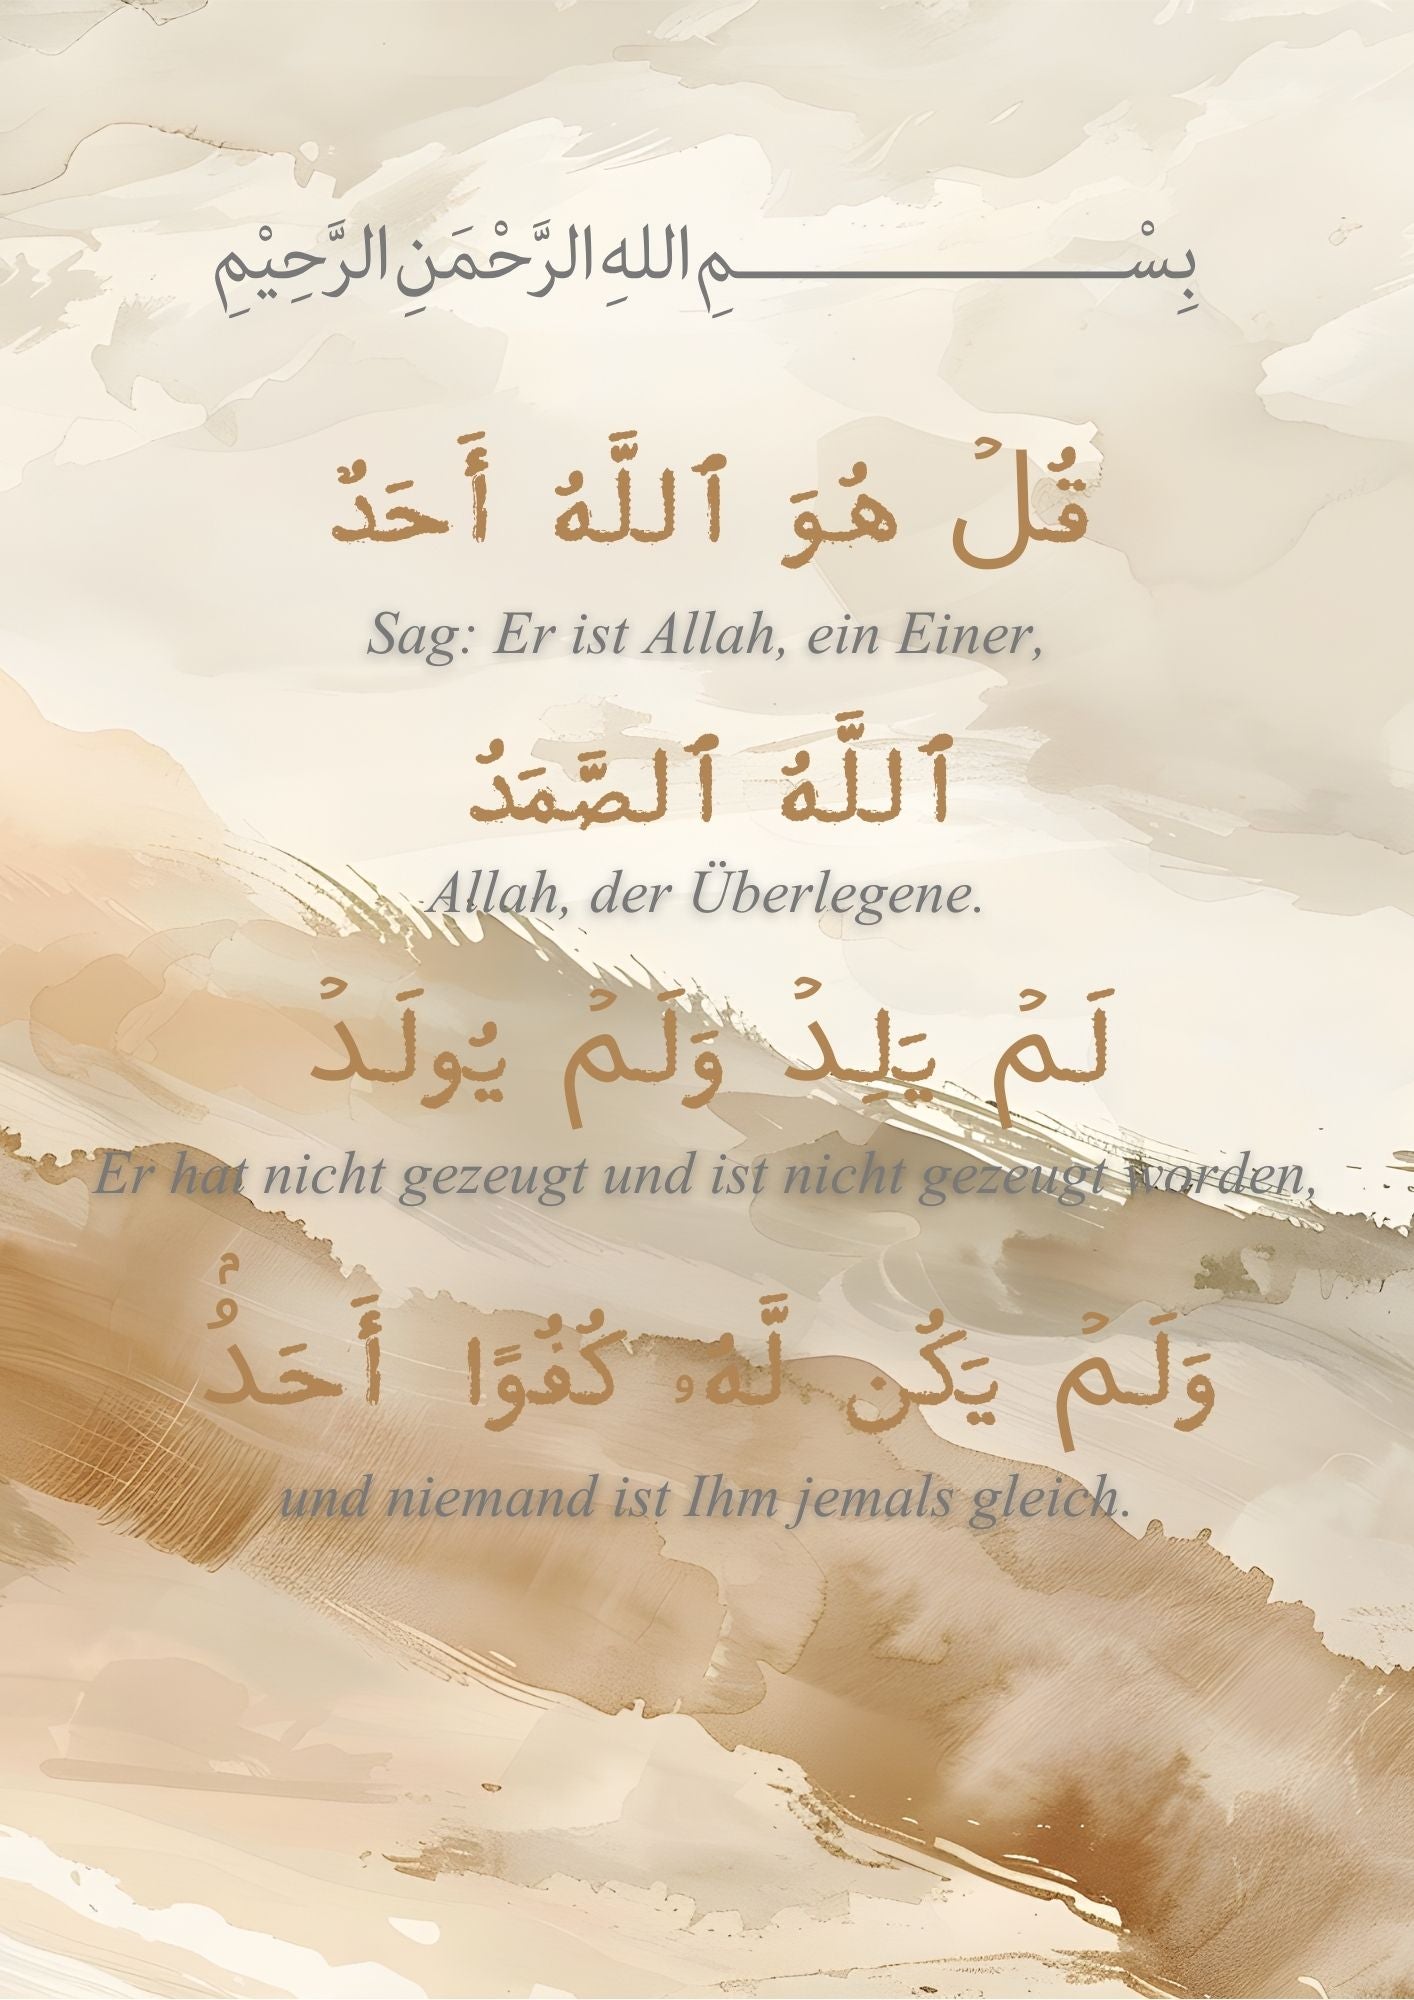 بِسْــــــــــــــــمِ اللهِ الرَّحْمَنِ الرَّحِيْمِ
قُلۡ هُوَ ٱللَّهُ أَحَدٌ
Sag: Er ist Allah, ein Einer,
ٱللَّهُ ٱلصَّمَدُ
Allah, der Überlegene.
لَمۡ يَلِدۡ وَلَمۡ يُولَدۡ
Er hat nicht gezeugt und ist nicht gezeugt worden,
وَلَمۡ يَكُن لَّهُۥ كُفُوًا أَحَدُۢ
und niemand ist Ihm jemals gleich.